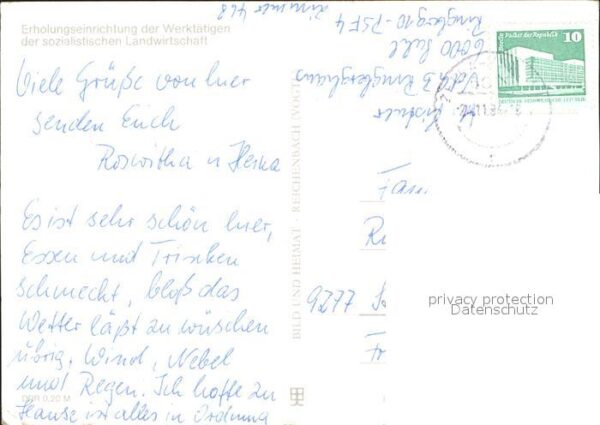 Erholungseinrichtung der Werktätigen
der sozialistischen Landwirtschaft
Viele Grüße von hier
senden Euch
Roswitha u Heina
Es ist sehr schön hier,
Essen und Trinken
schmeckt, bloß das
Wetter läßt zu wüschen
übrig, Wind, Nebel
und Regen. Ich hoffe zu
Hause ist alles in Ordnung
DDR 0,20 M
BILD UND HEIMAT · REICHENBACH (VOGTL
Fischer
VdgB Ringberghaus
6000 Suhl
Ringberg 10 - PSF 4
Zimmer 468
Palast der Republik
10
Fam.
9277
privacy protection
Datenschutz